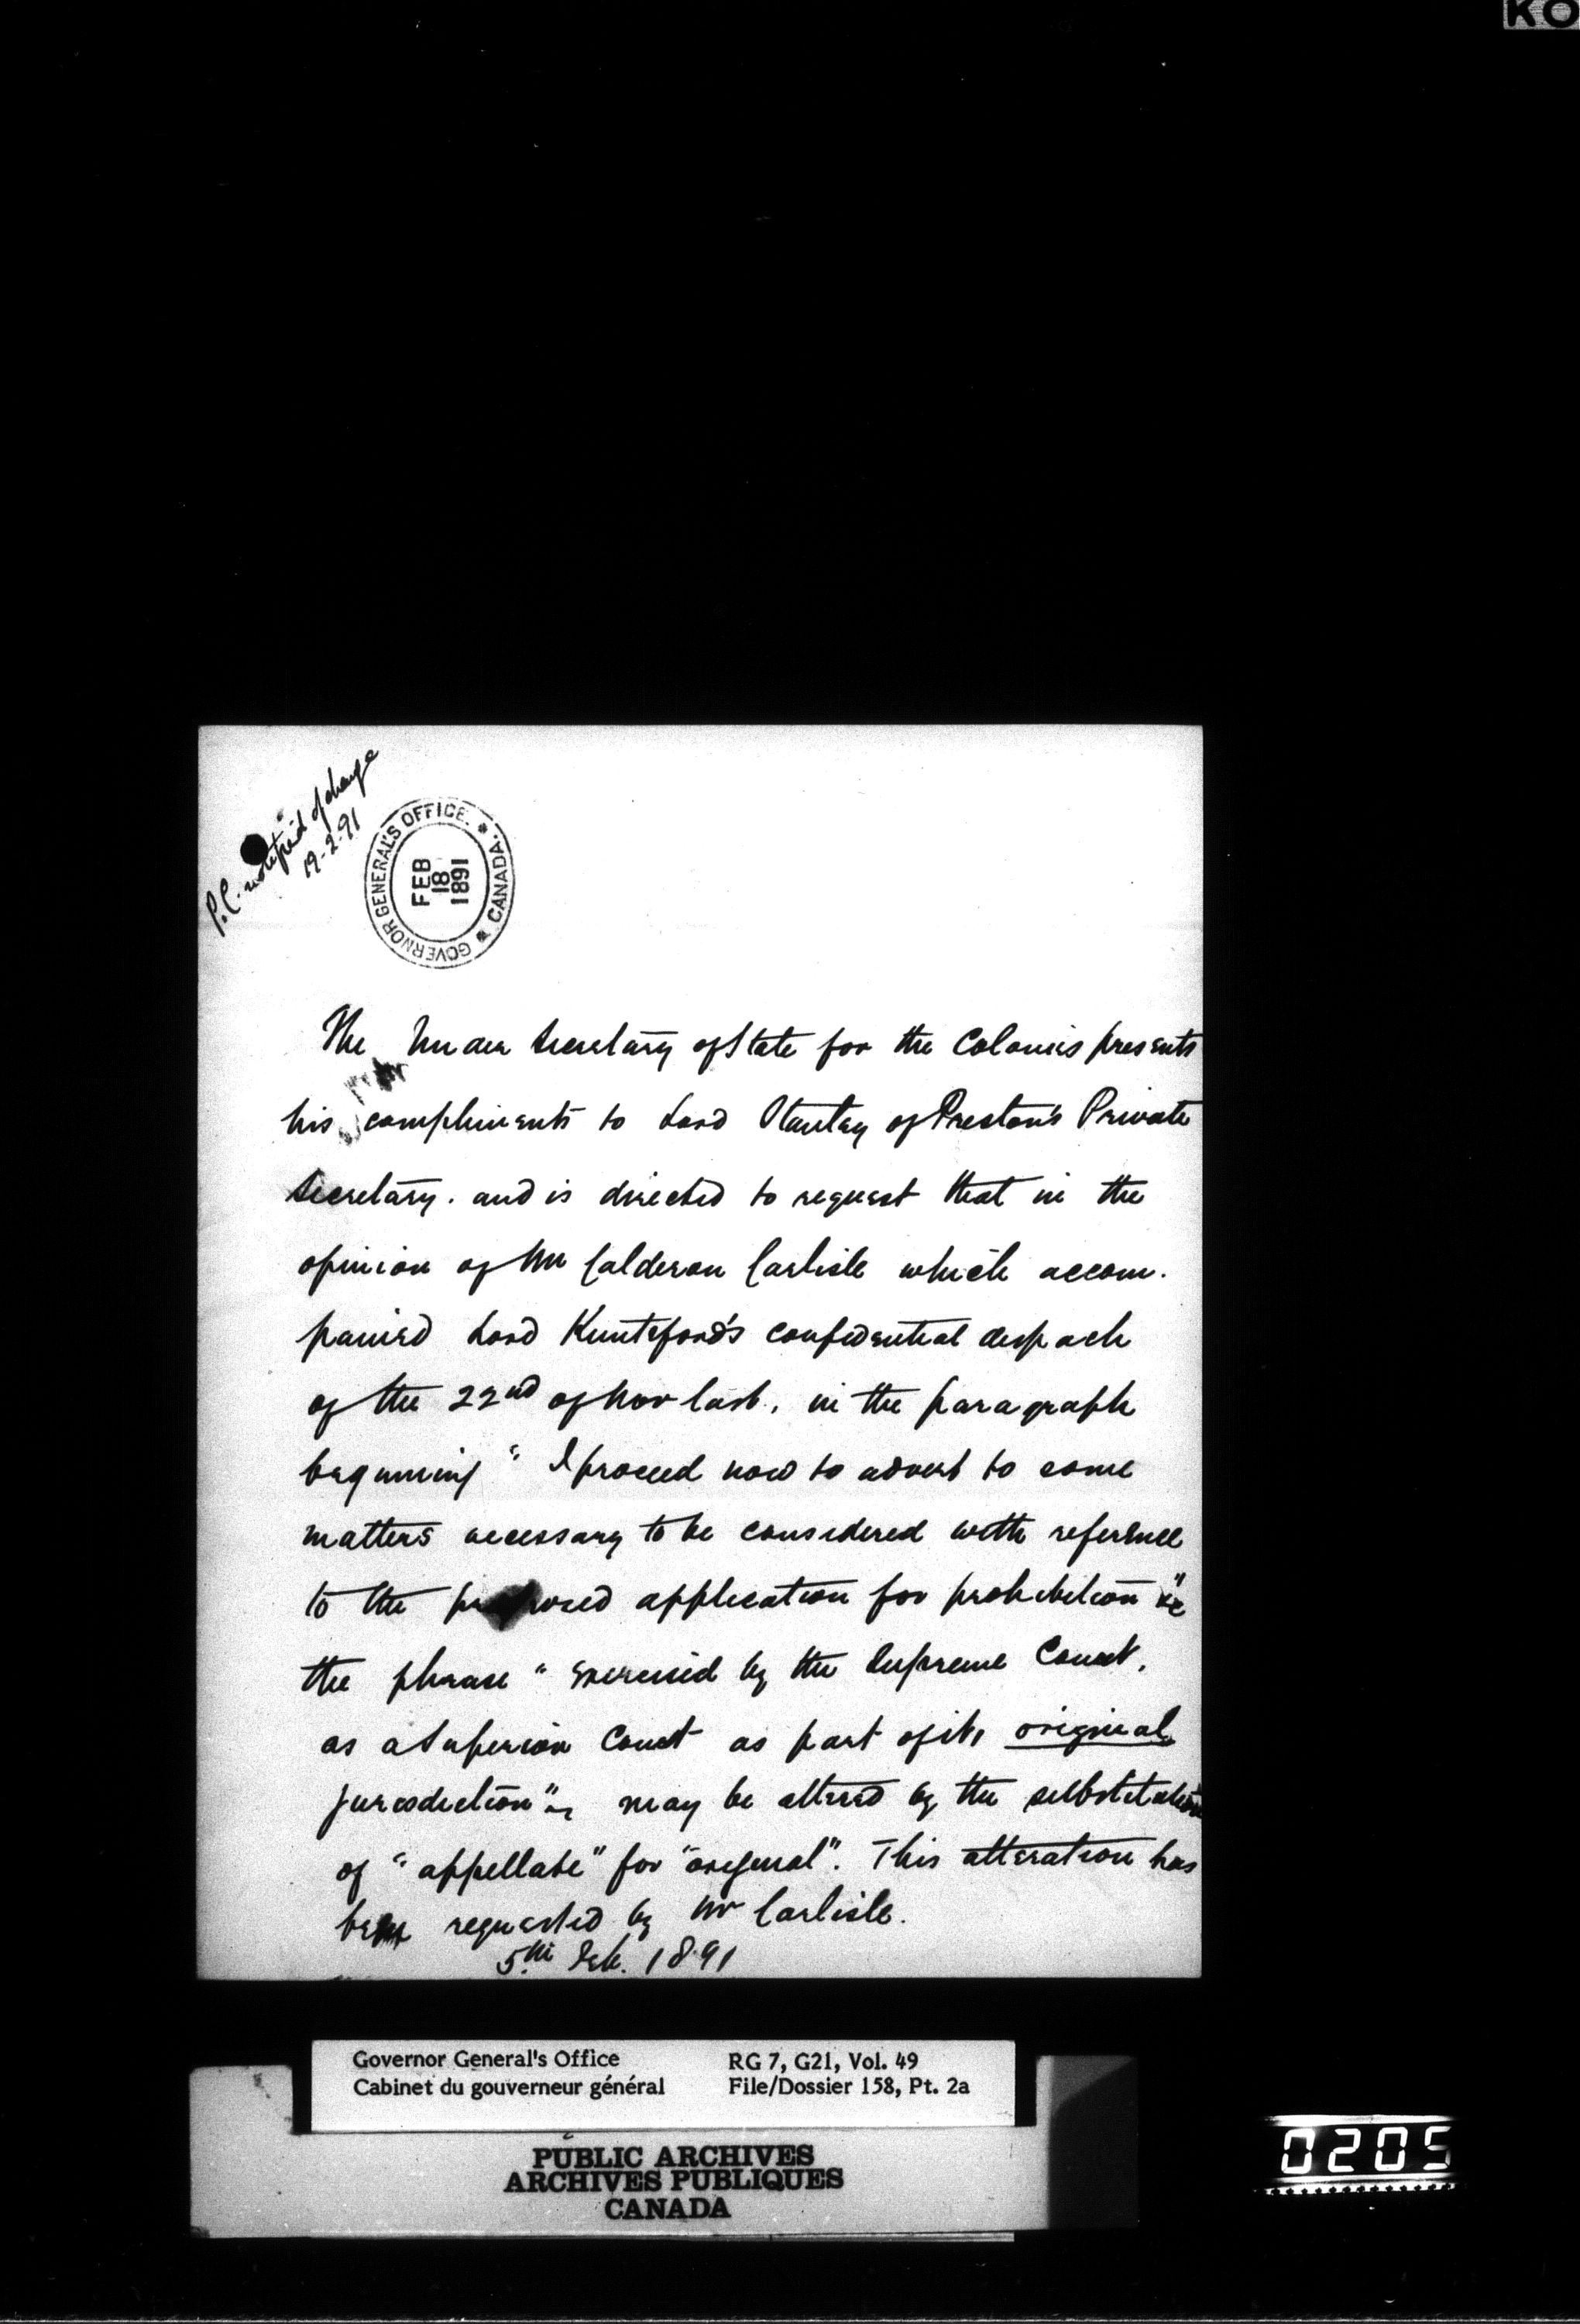 KO
P.C. notified of change
19-2-91
GOVERNOR GENERAL'S OFFICE. * CANADA. *
FEB
18
1891
The Under Secretary of State for the Colonies presents
his compliments to Lord Stanley of Preston's Private
Secretary. and is directed to request that in the
opinion of Mr Calderon Carlisle which accom-
panied Lord Knutsford's confidential despach
of the 22nd of Nov last, in the paragraph
beginning "I proceed now to advert to some
matters necessary to be considered with reference
to the proposed application for prohibition" &c
the phrase "exercised by the Supreme Court,
as a Superior Court as part of its original
jurisdiction", may be altered by the substitution
of "appellate" for "original". This alteration has
been requested by Mr Carlisle.
5th Feb. 1891
Governor General's Office RG 7, G21, Vol. 49
Cabinet du gouverneur général File/Dossier 158, Pt. 2a
PUBLIC ARCHIVES
ARCHIVES PUBLIQUES
CANADA
0205